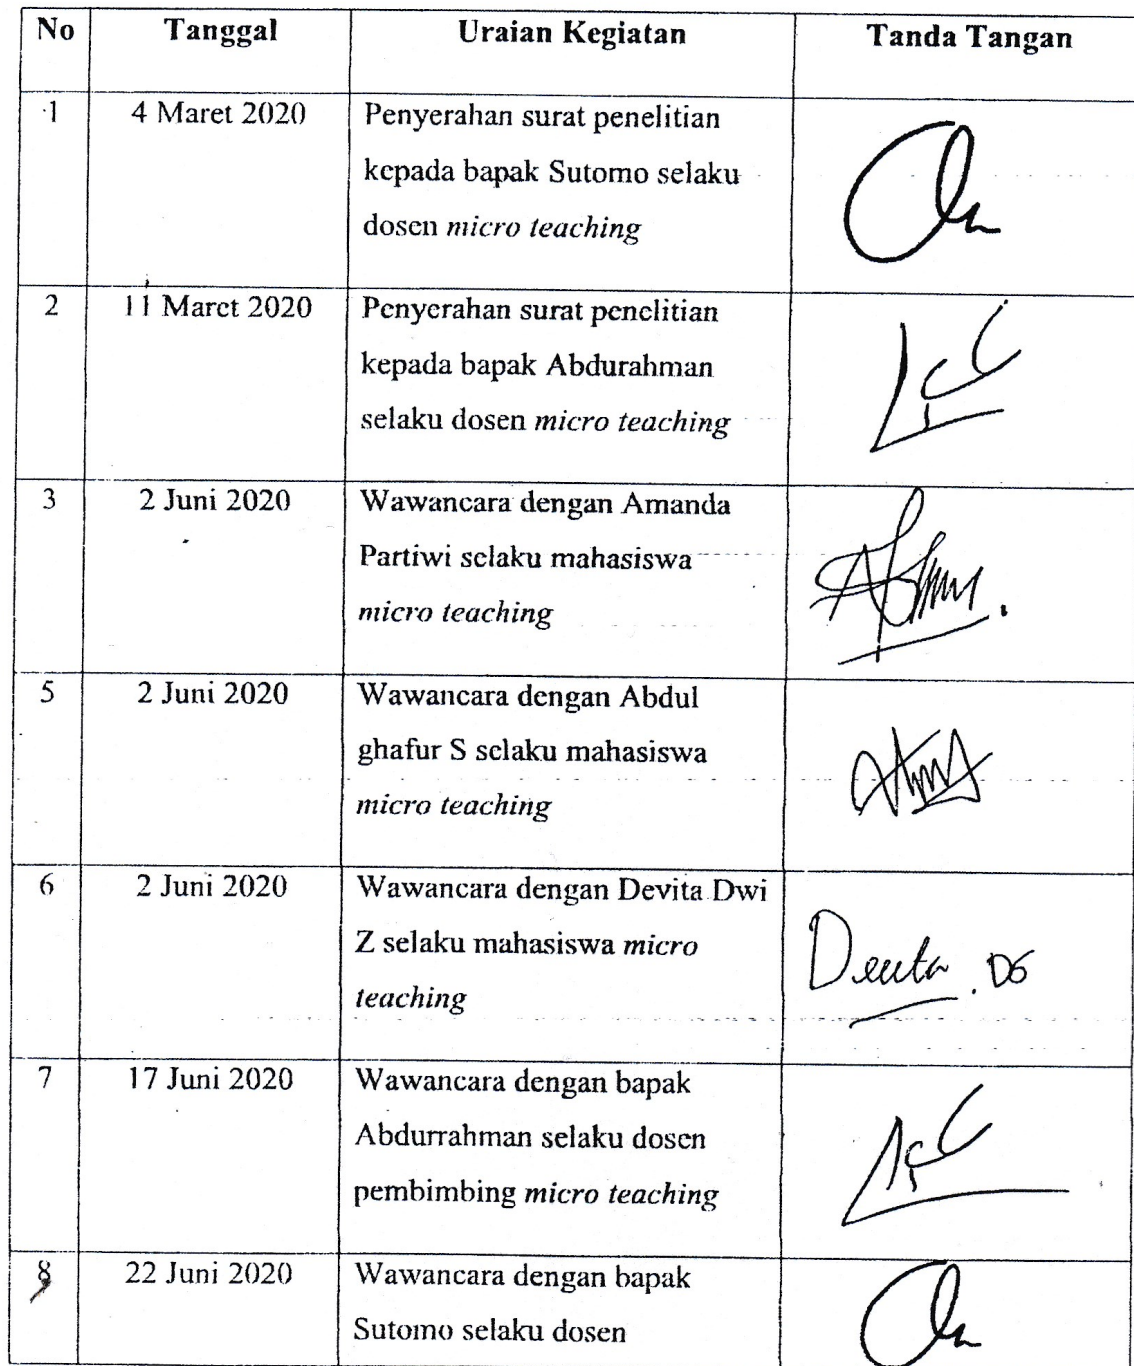 No Tanggal Uraian Kegiatan Tanda Tangan
1 4 Maret 2020 Penyerahan surat penelitian
kepada bapak Sutomo selaku
dosen micro teaching
2 11 Maret 2020 Penyerahan surat penelitian
kepada bapak Abdurahman
selaku dosen micro teaching
3 2 Juni 2020 Wawancara dengan Amanda
Partiwi selaku mahasiswa
micro teaching
5 2 Juni 2020 Wawancara dengan Abdul
ghafur S selaku mahasiswa
micro teaching
6 2 Juni 2020 Wawancara dengan Devita Dwi
Z selaku mahasiswa micro
teaching
7 17 Juni 2020 Wawancara dengan bapak
Abdurrahman selaku dosen
pembimbing micro teaching
8 22 Juni 2020 Wawancara dengan bapak
Sutomo selaku dosen